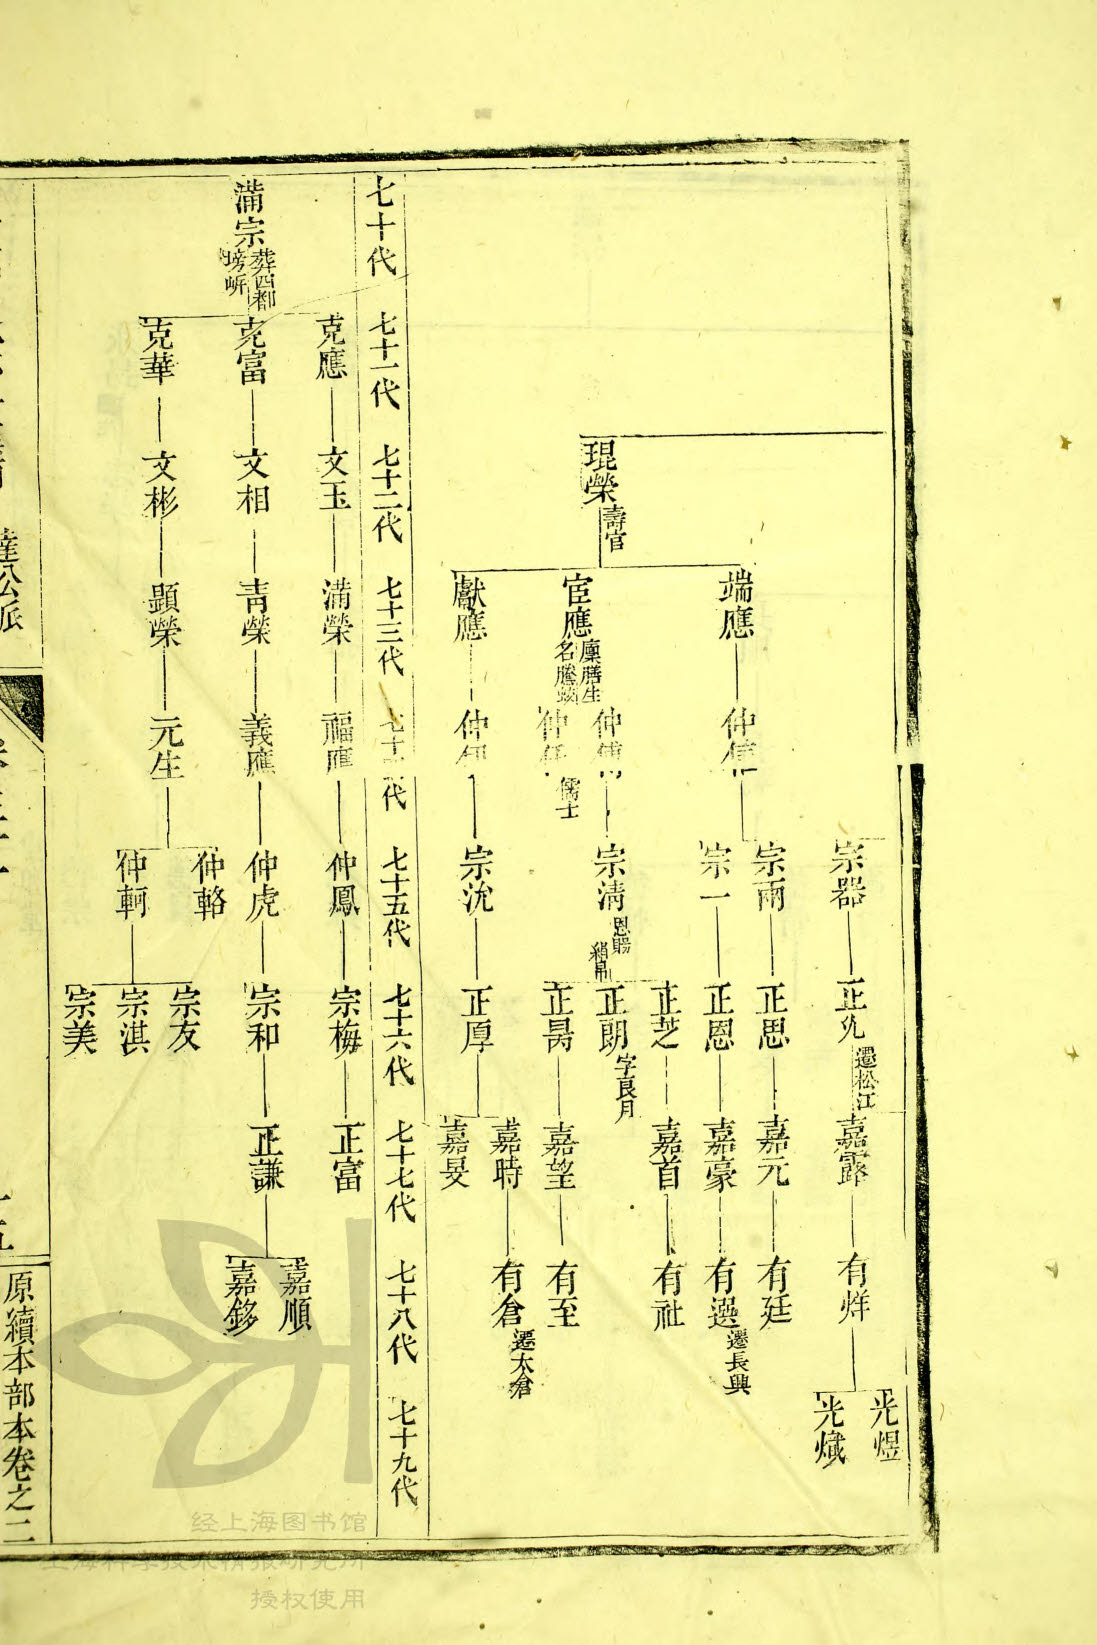 琨榮壽官
端應
宦應廩膳生
名騰蛟
獻應
仲
仲
仲
儒士
仲
宗器
宗雨
宗一
宗淸
恩賜
絹帛
宗沇
遷松江
正思
正恩
正芝
正朗字良月
正昺
正厚
嘉露
嘉元
嘉豪
嘉首
嘉望
嘉時
嘉旻
有烊
有廷
有選遷長興
有祉
有至
有倉遷太倉
光煜
光熾
七十代
七十一代
七十二代
七十三代
七十
代
七十五代
七十六代
七十七代
七十八代
七十九代
滿宗葬四都
塝𡵺
克應
克富
克華
文玉
文相
文彬
滿榮
青榮
顯榮
福應
義應
元生
仲鳳
仲虎
仲輅
仲軻
宗梅
宗和
宗友
宗淇
宗美
正富
正謙
嘉順
嘉
達公派
原續本部本卷之二
经上海图书馆
上海科学技术情报研究所
授权使用